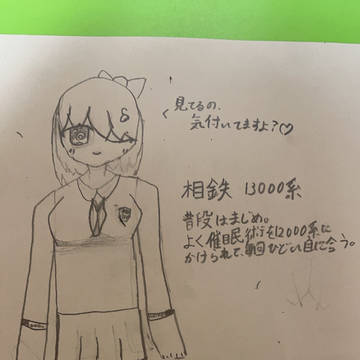 見てるの、
気付いてますよ?♡
相鉄 13000系
普段はまじめ。
よく催眠術を12000系に
かけられて、毎回ひどい目に合う。